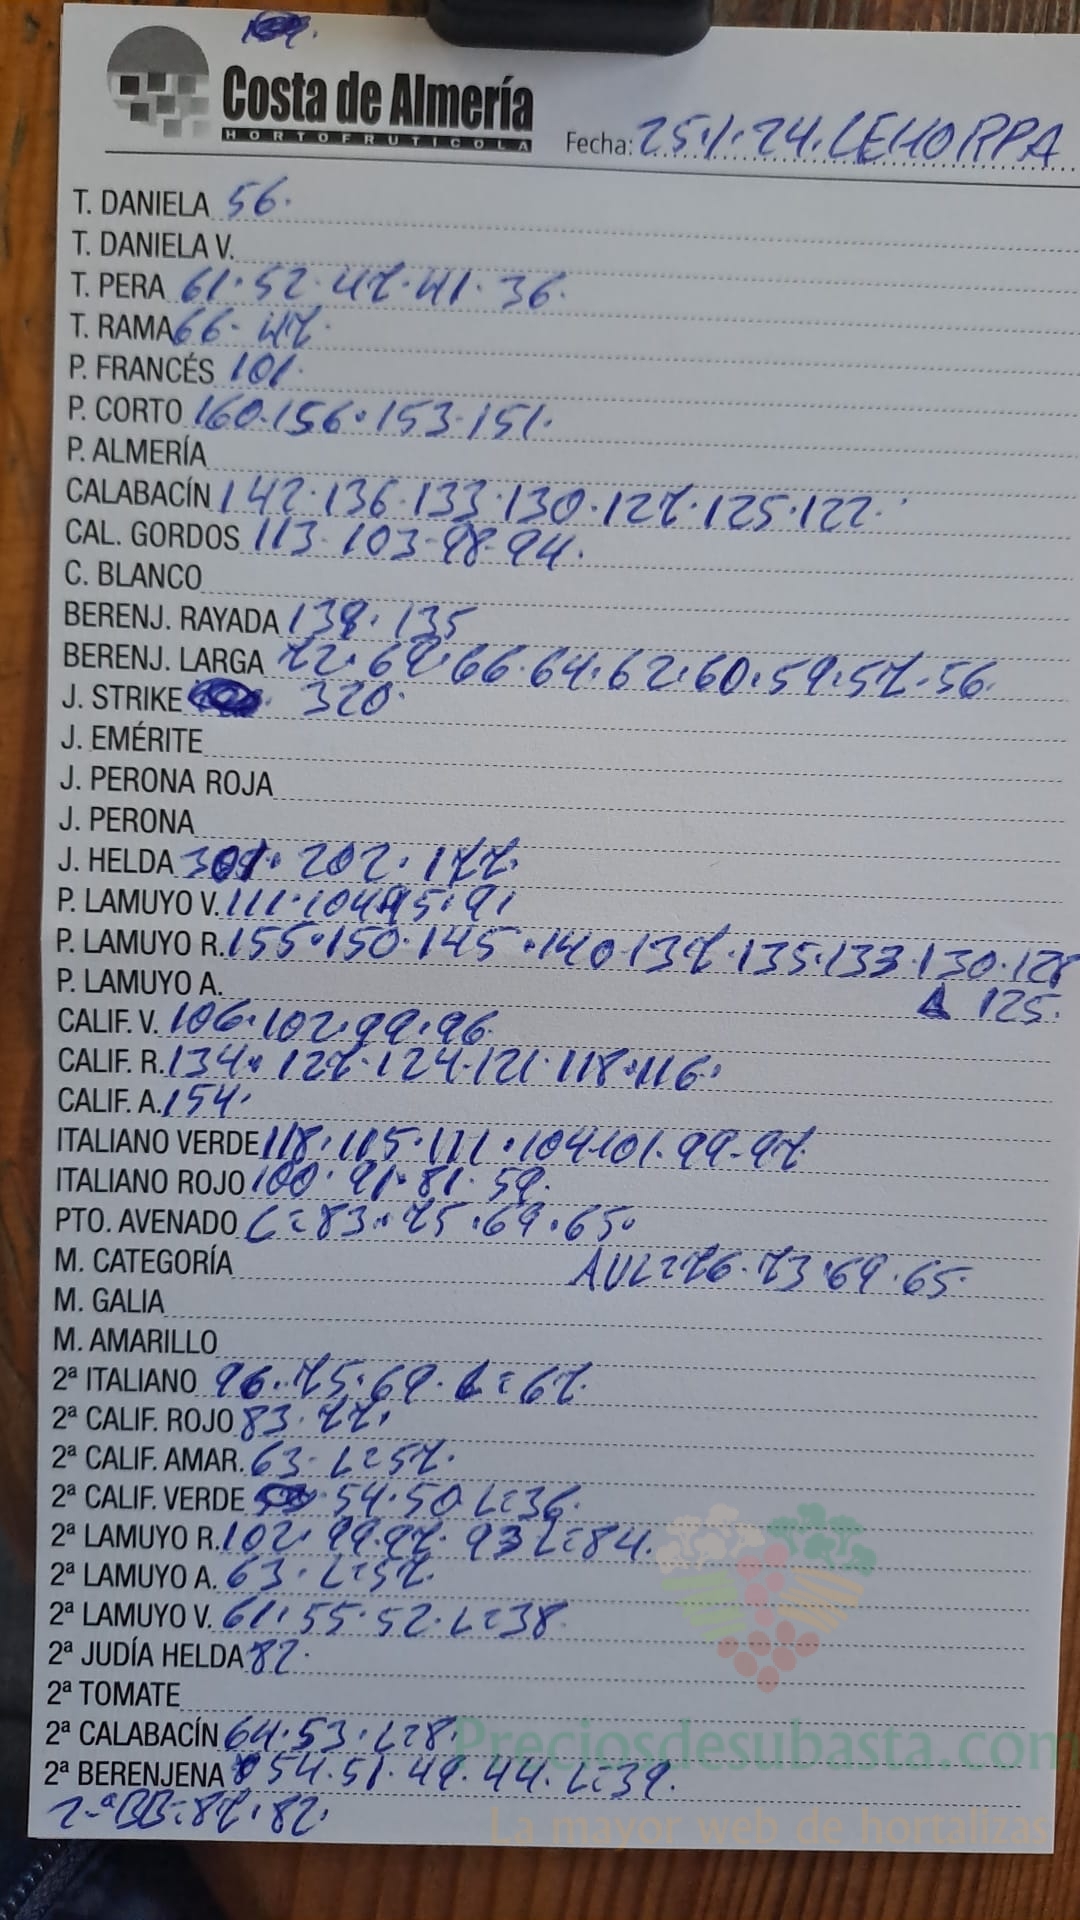 Costa de Almería
HORTOFRUTICOLA
Fecha: 25.1.24. LEHORPA
T. DANIELA 56.
T. DANIELA V.
T. PERA 61.52.47.41.36.
T. RAMA 66.47.
P. FRANCÉS 101.
P. CORTO 160.156.153.151.
P. ALMERÍA
CALABACÍN 142.136.133.130.127.125.122.
CAL. GORDOS 113.103.98.94.
C. BLANCO
BERENJ. RAYADA 138.135
BERENJ. LARGA 72.69.66.64.62.60.59.57.56.
J. STRIKE 320.
J. EMÉRITE
J. PERONA ROJA
J. PERONA
J. HELDA 301.202.177.
P. LAMUYO V. 111.104.95.91
P. LAMUYO R. 155.150.145.140.137.135.133.130.128
125.
P. LAMUYO A.
CALIF. V. 106.102.99.96.
CALIF. R. 134.127.124.121.118.116.
CALIF. A. 154.
ITALIANO VERDE 118.115.111.104.101.99.97.
ITALIANO ROJO 100.91.81.59.
PTO. AVENADO L=83.75.69.65.
M. CATEGORÍA AVL=76.73.69.65.
M. GALIA
M. AMARILLO
2ª ITALIANO 96.75.69.L=67.
2ª CALIF. ROJO 83.77.
2ª CALIF. AMAR. 63.L=57.
2ª CALIF. VERDE 54.50 L=36.
2ª LAMUYO R. 102.99.97.93 L=84.
2ª LAMUYO A. 63.L=57.
2ª LAMUYO V. 61.55.52.L=38.
2ª JUDÍA HELDA 82.
2ª TOMATE
2ª CALABACÍN 64.53.L=8.
2ª BERENJENA 54.51.49.44.L=39.
2-ªBB=87.82.
Preciosdesubasta.com
La mayor web de hortalizas